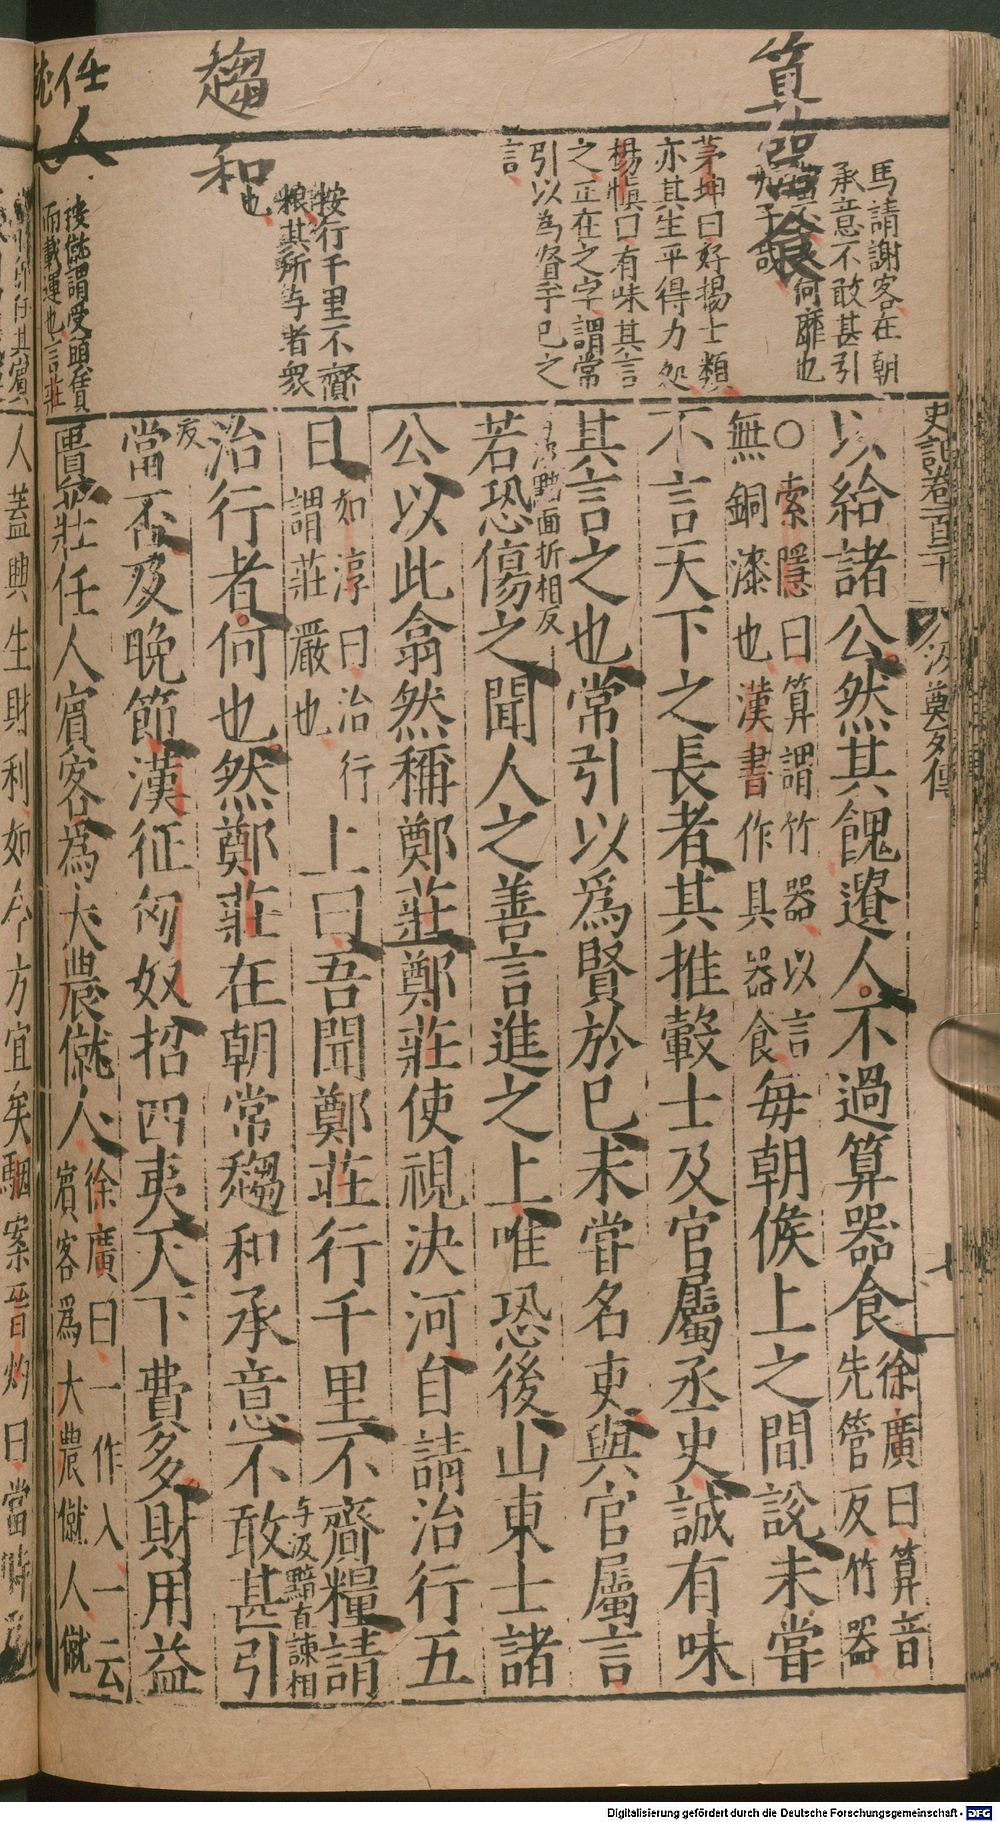 史記卷一百二十
汲鄭列傳
七
算器食
趨和
任人
馬請謝客在朝
承意不敢甚引
何靡也
茅坤曰好揚士類
亦其生平得力処
楊慎曰有味其言
之正在之字謂常
引以為賢于己之
言
按行千里不齎
粮其所与者衆
也
按僦謂受顧賃
而載運也言莊
以給諸公然其餽遺人不過算器食
徐廣曰算音
先管反竹器
○索隱曰算謂竹器以言
無銅漆也漢書作具器食
每朝候上之間說未嘗
不言天下之長者其推轂士及官屬丞史誠有味
其言之也常引以爲賢於已未嘗名吏與官屬言
面折相反
若恐傷之聞人之善言進之上唯恐後山東士諸
公以此翕然稱鄭莊鄭莊使視決河自請治行五
日
如淳曰治行
謂莊嚴也
上曰吾聞鄭莊行千里不齎糧請
与汲黯直諫相
反
治行者何也然鄭莊在朝常趨和承意不敢甚引
當否及晚節漢征匈奴招四夷天下費多財用益
匱莊任人賓客爲大農僦人
徐廣曰一作入一云
賓客爲大農僦人僦
人蓋興生財利如今方宜矣駰案晉灼曰當時
Digitalisierung gefördert durch die Deutsche Forschungsgemeinschaft - DFG